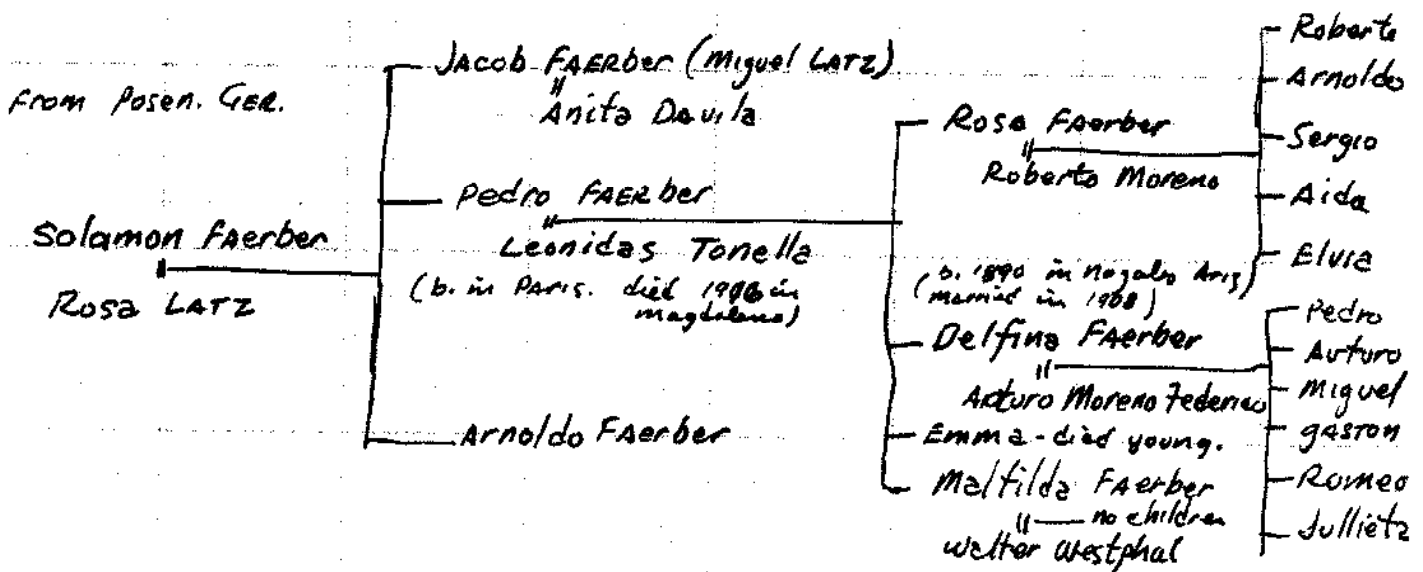 from Posen. GER.
Solamon FAerber
Rosa LATZ
Jacob FAERber (Miguel LATZ)
Anita Davila
Pedro FAERber
Leonidas Tonella
(b. in PARIS. died in
Magdalena)
Arnoldo FAerber
Rosa FAerber
Roberto Moreno
(b. 1890 in nogales Ariz)
(married in 1908)
Delfina FAerber
Arturo Moreno Federico
Emma - died young.
Maltilda FAerber
no children
Walter Westphal
Roberto
Arnoldo
Sergio
Aida
Elvia
Pedro
Arturo
Miguel
GASTON
Romeo
Jullieta